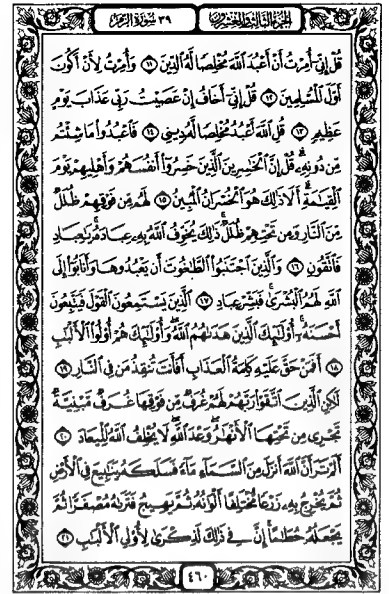 الجزء الثالث والعشرون
٣٩ سورة الزمر
قُلْ إِنِّىٓ أُمِرْتُ أَنْ أَعْبُدَ ٱللَّهَ مُخْلِصًا لَّهُ ٱلدِّينَ ١١ وَأُمِرْتُ لِأَنْ أَكُونَ
أَوَّلَ ٱلْمُسْلِمِينَ ١٢ قُلْ إِنِّىٓ أَخَافُ إِنْ عَصَيْتُ رَبِّى عَذَابَ يَوْمٍ
عَظِيمٍ ١٣ قُلِ ٱللَّهَ أَعْبُدُ مُخْلِصًا لَّهُۥ دِينِى ١٤ فَٱعْبُدُوا۟ مَا شِئْتُم
مِّن دُونِهِۦ ۗ قُلْ إِنَّ ٱلْخَٰسِرِينَ ٱلَّذِينَ خَسِرُوٓا۟ أَنفُسَهُمْ وَأَهْلِيهِمْ يَوْمَ
ٱلْقِيَٰمَةِ ۗ أَلَا ذَٰلِكَ هُوَ ٱلْخُسْرَانُ ٱلْمُبِينُ ١٥ لَهُم مِّن فَوْقِهِمْ ظُلَلٌ
مِّنَ ٱلنَّارِ وَمِن تَحْتِهِمْ ظُلَلٌ ۚ ذَٰلِكَ يُخَوِّفُ ٱللَّهُ بِهِۦ عِبَادَهُۥ ۚ يَٰعِبَادِ
فَٱتَّقُونِ ١٦ وَٱلَّذِينَ ٱجْتَنَبُوا۟ ٱلطَّٰغُوتَ أَن يَعْبُدُوهَا وَأَنَابُوٓا۟ إِلَى
ٱللَّهِ لَهُمُ ٱلْبُشْرَىٰ ۚ فَبَشِّرْ عِبَادِ ١٧ ٱلَّذِينَ يَسْتَمِعُونَ ٱلْقَوْلَ فَيَتَّبِعُونَ
أَحْسَنَهُۥٓ ۚ أُو۟لَٰٓئِكَ ٱلَّذِينَ هَدَىٰهُمُ ٱللَّهُ ۖ وَأُو۟لَٰٓئِكَ هُمْ أُو۟لُوا۟ ٱلْأَلْبَٰبِ
١٨ أَفَمَنْ حَقَّ عَلَيْهِ كَلِمَةُ ٱلْعَذَابِ أَفَأَنتَ تُنقِذُ مَن فِى ٱلنَّارِ ١٩
لَٰكِنِ ٱلَّذِينَ ٱتَّقَوْا۟ رَبَّهُمْ لَهُمْ غُرَفٌ مِّن فَوْقِهَا غُرَفٌ مَّبْنِيَّةٌ
تَجْرِى مِن تَحْتِهَا ٱلْأَنْهَٰرُ ۖ وَعْدَ ٱللَّهِ ۖ لَا يُخْلِفُ ٱللَّهُ ٱلْمِيعَادَ ٢٠
أَلَمْ تَرَ أَنَّ ٱللَّهَ أَنزَلَ مِنَ ٱلسَّمَآءِ مَآءً فَسَلَكَهُۥ يَنَٰبِيعَ فِى ٱلْأَرْضِ
ثُمَّ يُخْرِجُ بِهِۦ زَرْعًا مُّخْتَلِفًا أَلْوَٰنُهُۥ ثُمَّ يَهِيجُ فَتَرَىٰهُ مُصْفَرًّا ثُمَّ
يَجْعَلُهُۥ حُطَٰمًا ۚ إِنَّ فِى ذَٰلِكَ لَذِكْرَىٰ لِأُو۟لِى ٱلْأَلْبَٰبِ ٢١
٤٦٠